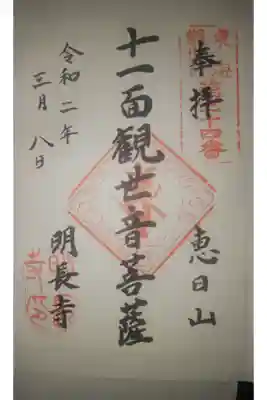 奉拝
恵日山
十一面観世音菩薩
明長寺
令和二年
三月八日